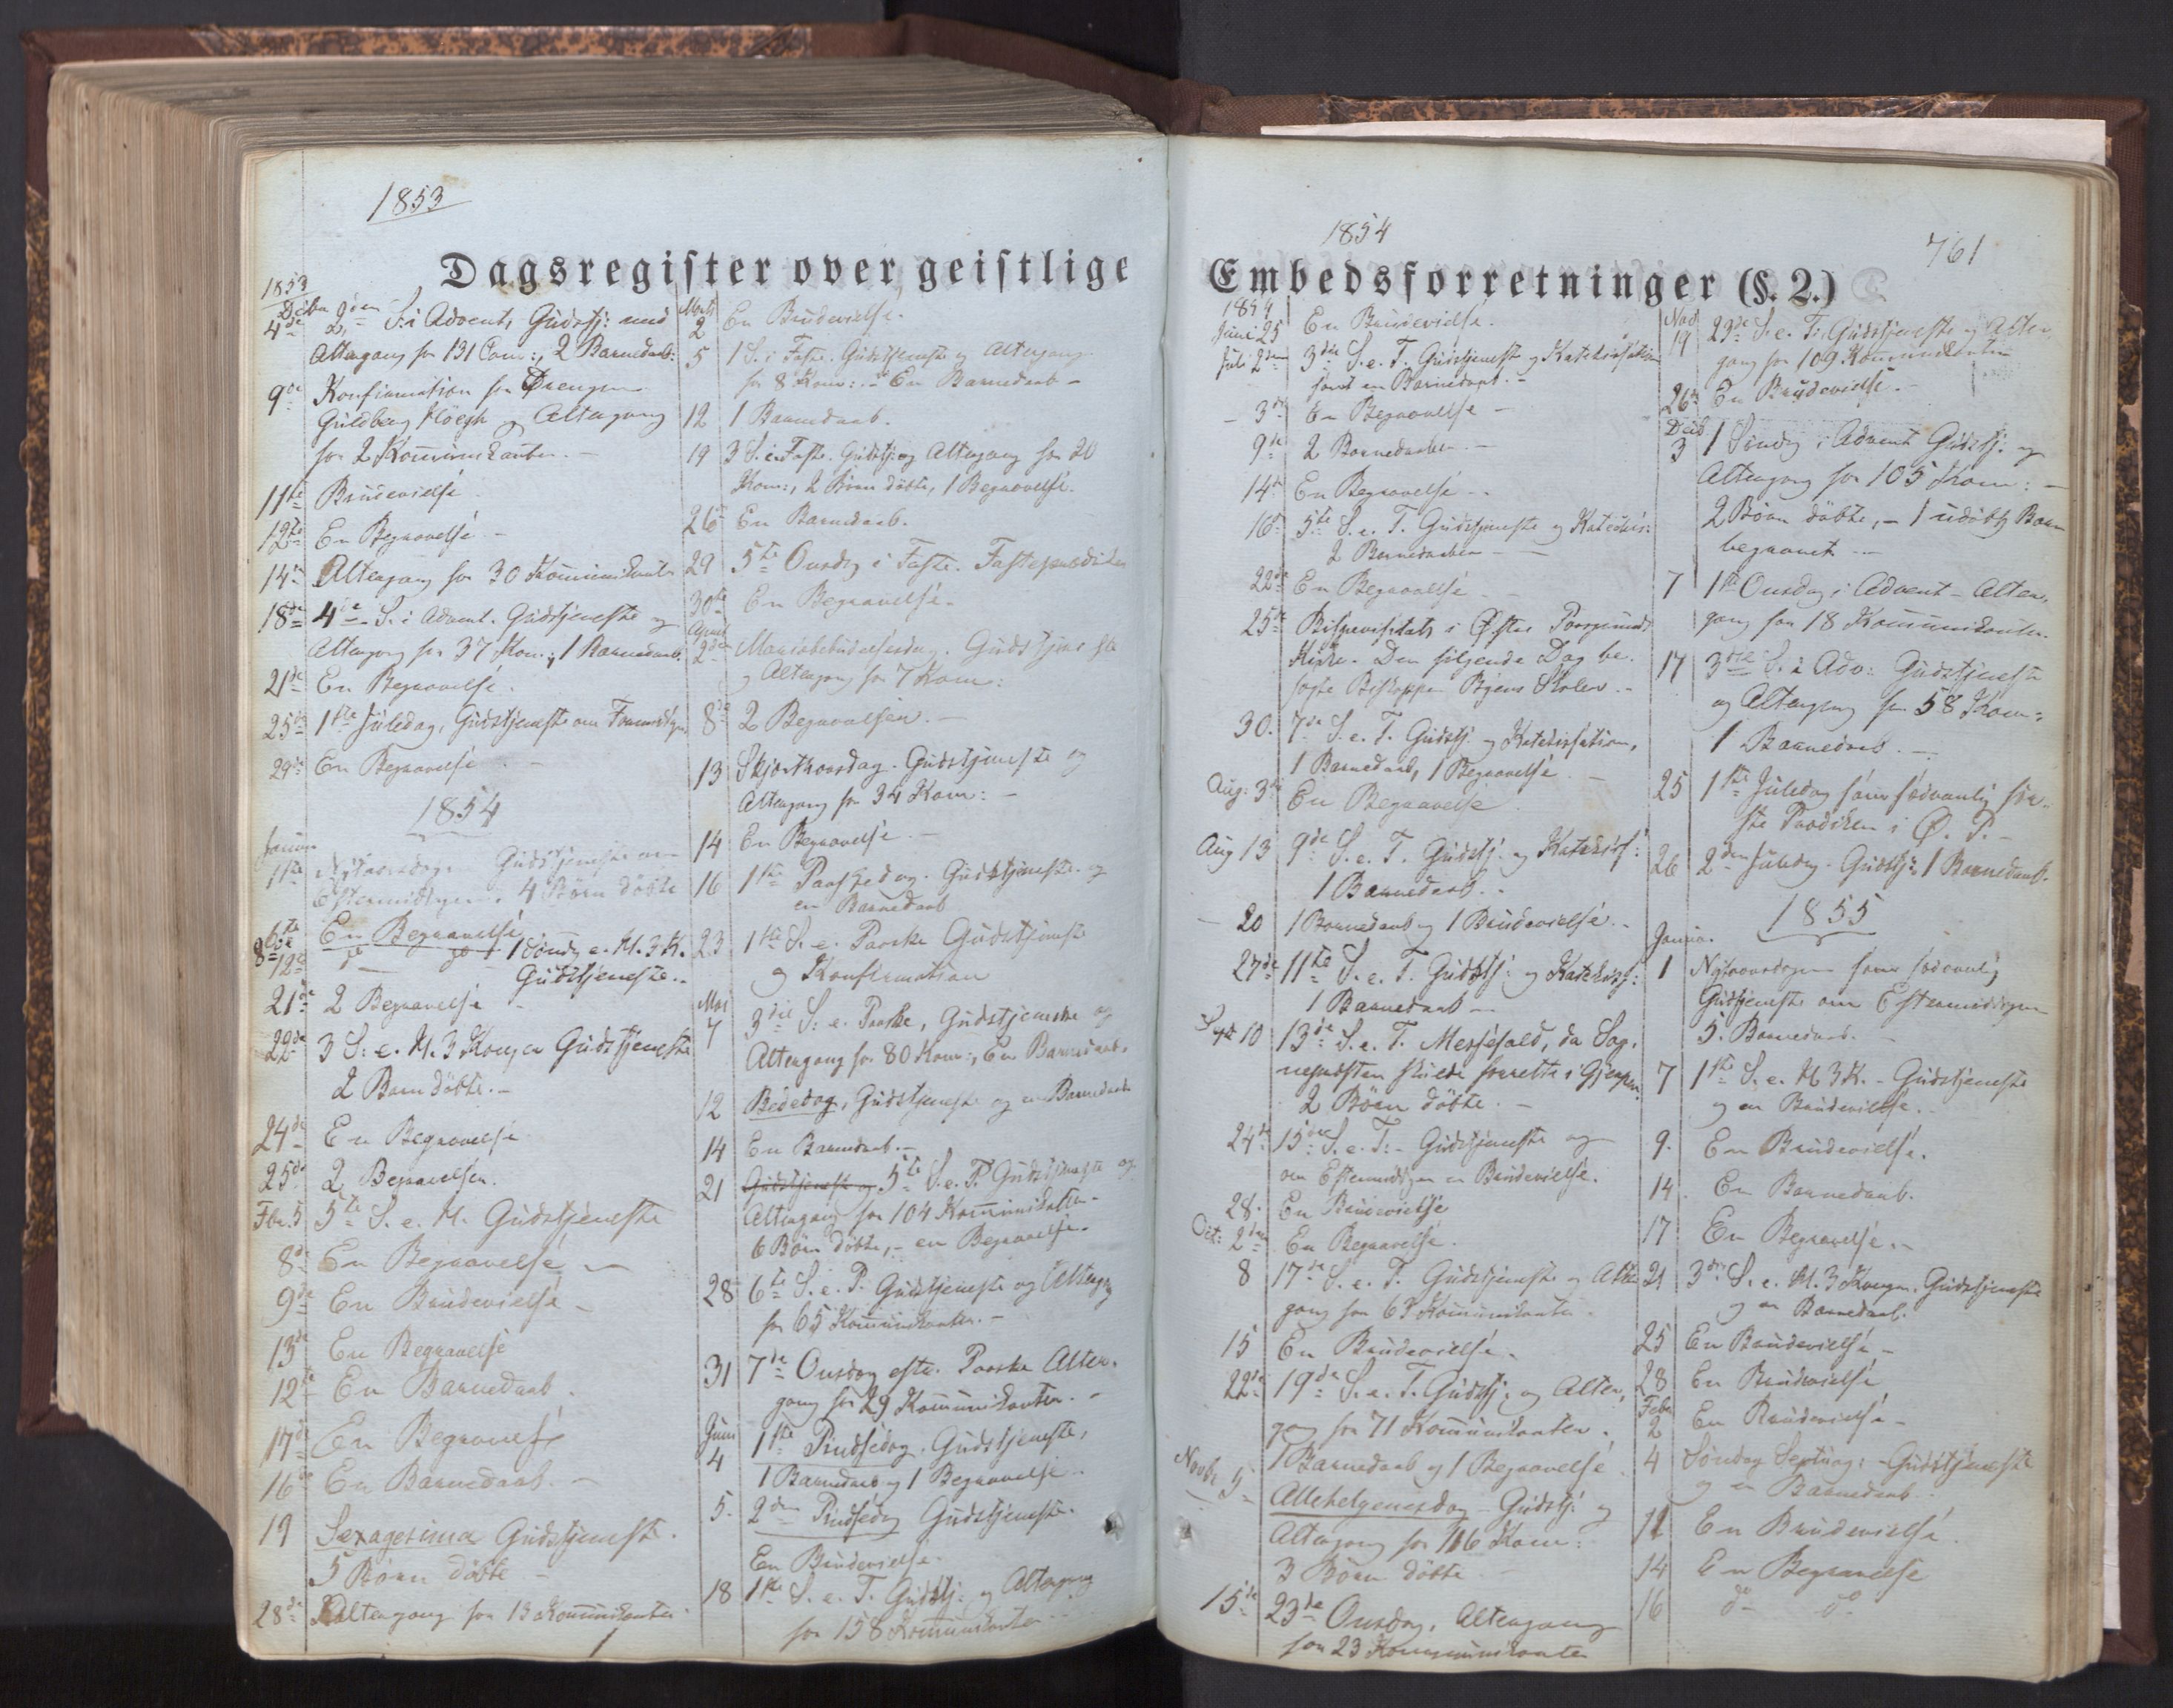 1853
Dagsregister over geistlige
1853
Decbr
4de 2den S. i Advent, Gudstj: med
Altergang for 131 Com:, 2 Barnedaab:
9de Konfirmation for Drengen
Guldberg Höegh og Altergang
for 2 Kommunikanter. -
11te Brudevielse
12te En Begravelse -
14de Altergang for 30 Kommunikanter
18de 4de S. i Advent. Gudstjeneste og
Altergang for 37 Kom:, 1 Barnedaab.
21de En Begravelse.
25de 1ste Juledag, Gudstjeneste om Formidd
29de En Begravelse. -
1854
Januar
1ste Nytaarsdag. Gudstjeneste om
Eftermiddagen. 4 Börn döbte
6te En Begravelse
8de 1 Sönd. e. H. 3 K.
12te do do
Gudstjeneste..
21de 2 Begravelse -
22de 3 S: e. H. 3 Konger Gudstjeneste
2 Børn döbte. -
24de En Begravelse
25de 2 Begravelser.
Fbr. 5 5te S. e. H. Gudstjeneste
8de En Begravelse -
9de En Brudevielse -
13de En Begravelse
12te En Barnedaab.
17de En Begravelse
16de En Barnedaab. -
19 Sexagesima Gudstjeneste.
5 Börn döbte -
28de Altergang for 13 Kommunikanter.
Marts
2 En Brudevielse.
5 1 S. i Faste. Gudstjeneste og Altergang
for 8 Kom: - En Barnedaab -
12 1 Barnedaab.
19 3 S. i Faste. Gudstj: og Altergang for 20
Kom:, 2 Börn döbte, 1 Begravelse.
26 En Barnedaab.
29 5te Onsdag i Faste. Fasteprædiken
30te En Begravelse -
April
2den Mariæbebudelsesdag. Gudstjeneste
og Altergang for 7 Kom:
8de 2 Begravelser. -
13 Skjærthorsdag. Gudstjeneste og
Altergang for 34 Kom: -
14 En Begravelse. -
16 1ste Paaskedag. Gudstjeneste og
en Barnedaab
23 1ste S. e. Paaske Gudstjeneste
og Konfirmation
Mai
7 3die S: e. Paaske, Gudstjeneste og
Altergang for 80 Kom:, En Barnedaab.
12 Bededag, Gudstjeneste og en Barnedaab
14 En Barnedaab. -
21 Gudstjeneste og 5te S. e. P. Gudstjeneste og
Altergang for 104 Kommunikanter -
6 Börn döbte, - en Begravelse.
28 6te S. e. P. Gudstjeneste og Altergang
for 65 Kommunikanter. -
31 7de Onsdag efter Paaske Alter-
gang for 29 Kommunikanter. -
Juni
4 1ste Pindsedag. Gudstjeneste,
1 Barnedaab og 1 Begravelse.
5. 2den Pindsedag Gudstjeneste.
En Brudevielse.
18 1ste S. e. T. Gudstj: og Altergang
for 158 Kommunikanter. -
1854
761
Embedsforretninger (§. 2.)
1854
Juni 25 En Brudevielse.
Juli 2den 3die S. e. T. Gudstjeneste og Katekisation
samt en Barnedaab. -
- 3die En Begravelse -
9de 2 Barnedaaber -
14de En Begravelse -
16de 5te S. e. T. Gudstjeneste og Katekis:
2 Barnedaaber -
22de En Begravelse -
25de Bispevisitats i Øster Porsgrunds
Kirke. Den følgende Dag be-
søgte Biskoppen Byens Skoler. -
30. 7de S. e. T. Gudstj. og Katekisation,
1 Barnedaab, 1 Begravelse. -
Aug: 3die En Begravelse.
Aug 13 9de S. e. T. Gudstj: og Katekis:
1 Barnedaab. -
- 20 1 Barnedaab og 1 Brudevielse. -
27de 11te S. e. T. Gudstj: og Katekis:
1 Barnedaab -
Sept 10 13de S. e. T. Messefald, da Sog-
nepresten skulde forrette i Gjerpen.
2 Börn döbte. -
24de 15de S. e. T. - Gudstjeneste og
om Eftermiddagen en Brudevielse.
28. En Brudevielse
Oct: 2den En Begravelse.
8 17de S. e. T. Gudstjeneste og Alter
gang for 67 Kommunikanter.
15 En Brudevielse.
22de 19de S. e. T. Gudstj: og Alter,
gang for 71 Kommunikanter.
1 Barnedaab og 1 Begravelse.
Novbr 5 Allehelgensdag Gudstj: og
Altergang for 116 Kom:
3 Börn döbte -
15de 23de Onsdag. Altergang
for 23 Kommunikanter
Nov
19 23de S. e. T. Gudstjeneste og Alter,
gang for 109 Kommunikanter
26de En Brudevielse. -
Decb
3 1 Søndag i Advent Gudstj: og
Altergang for 105 Kom: -
2 Börn döbte, - 1 udöbt Barn
begravet. -
7 1ste Onsdag i Advent - Alter,
gang for 18 Kommunikanter.
17 3die S. i Adv: Gudstjeneste
og Altergang for 58 Kom:
1 Barnedaab. -
25 1ste Juledag som sædvanlig før-
ste Prædiken i Ø. P. -
26 2den Juledag - Gudstj: 1 Barnedaab.
1855
Januar
1 Nytaarsdagen som sædvanlig
Gudstjeneste om Eftermiddagen
5 Barnedaab. -
7 1ste S. e. H 3 K. - Gudstjeneste
og en Brudevielse. -
9. En Brudevielse.
14. En Barnedaab.
17 En Begravelse. -
21 3die S. e. H. 3 Konger. Gudstjeneste
og en Barnedaab.
25 En Brudevielse -
28 En Brudevielse
Febr
2 En Brudevielse -
4 Søndag Septuag: - Gudstjeneste
og en Barnedaab
11 En Brudevielse.
14 En Begravelse
16 do do